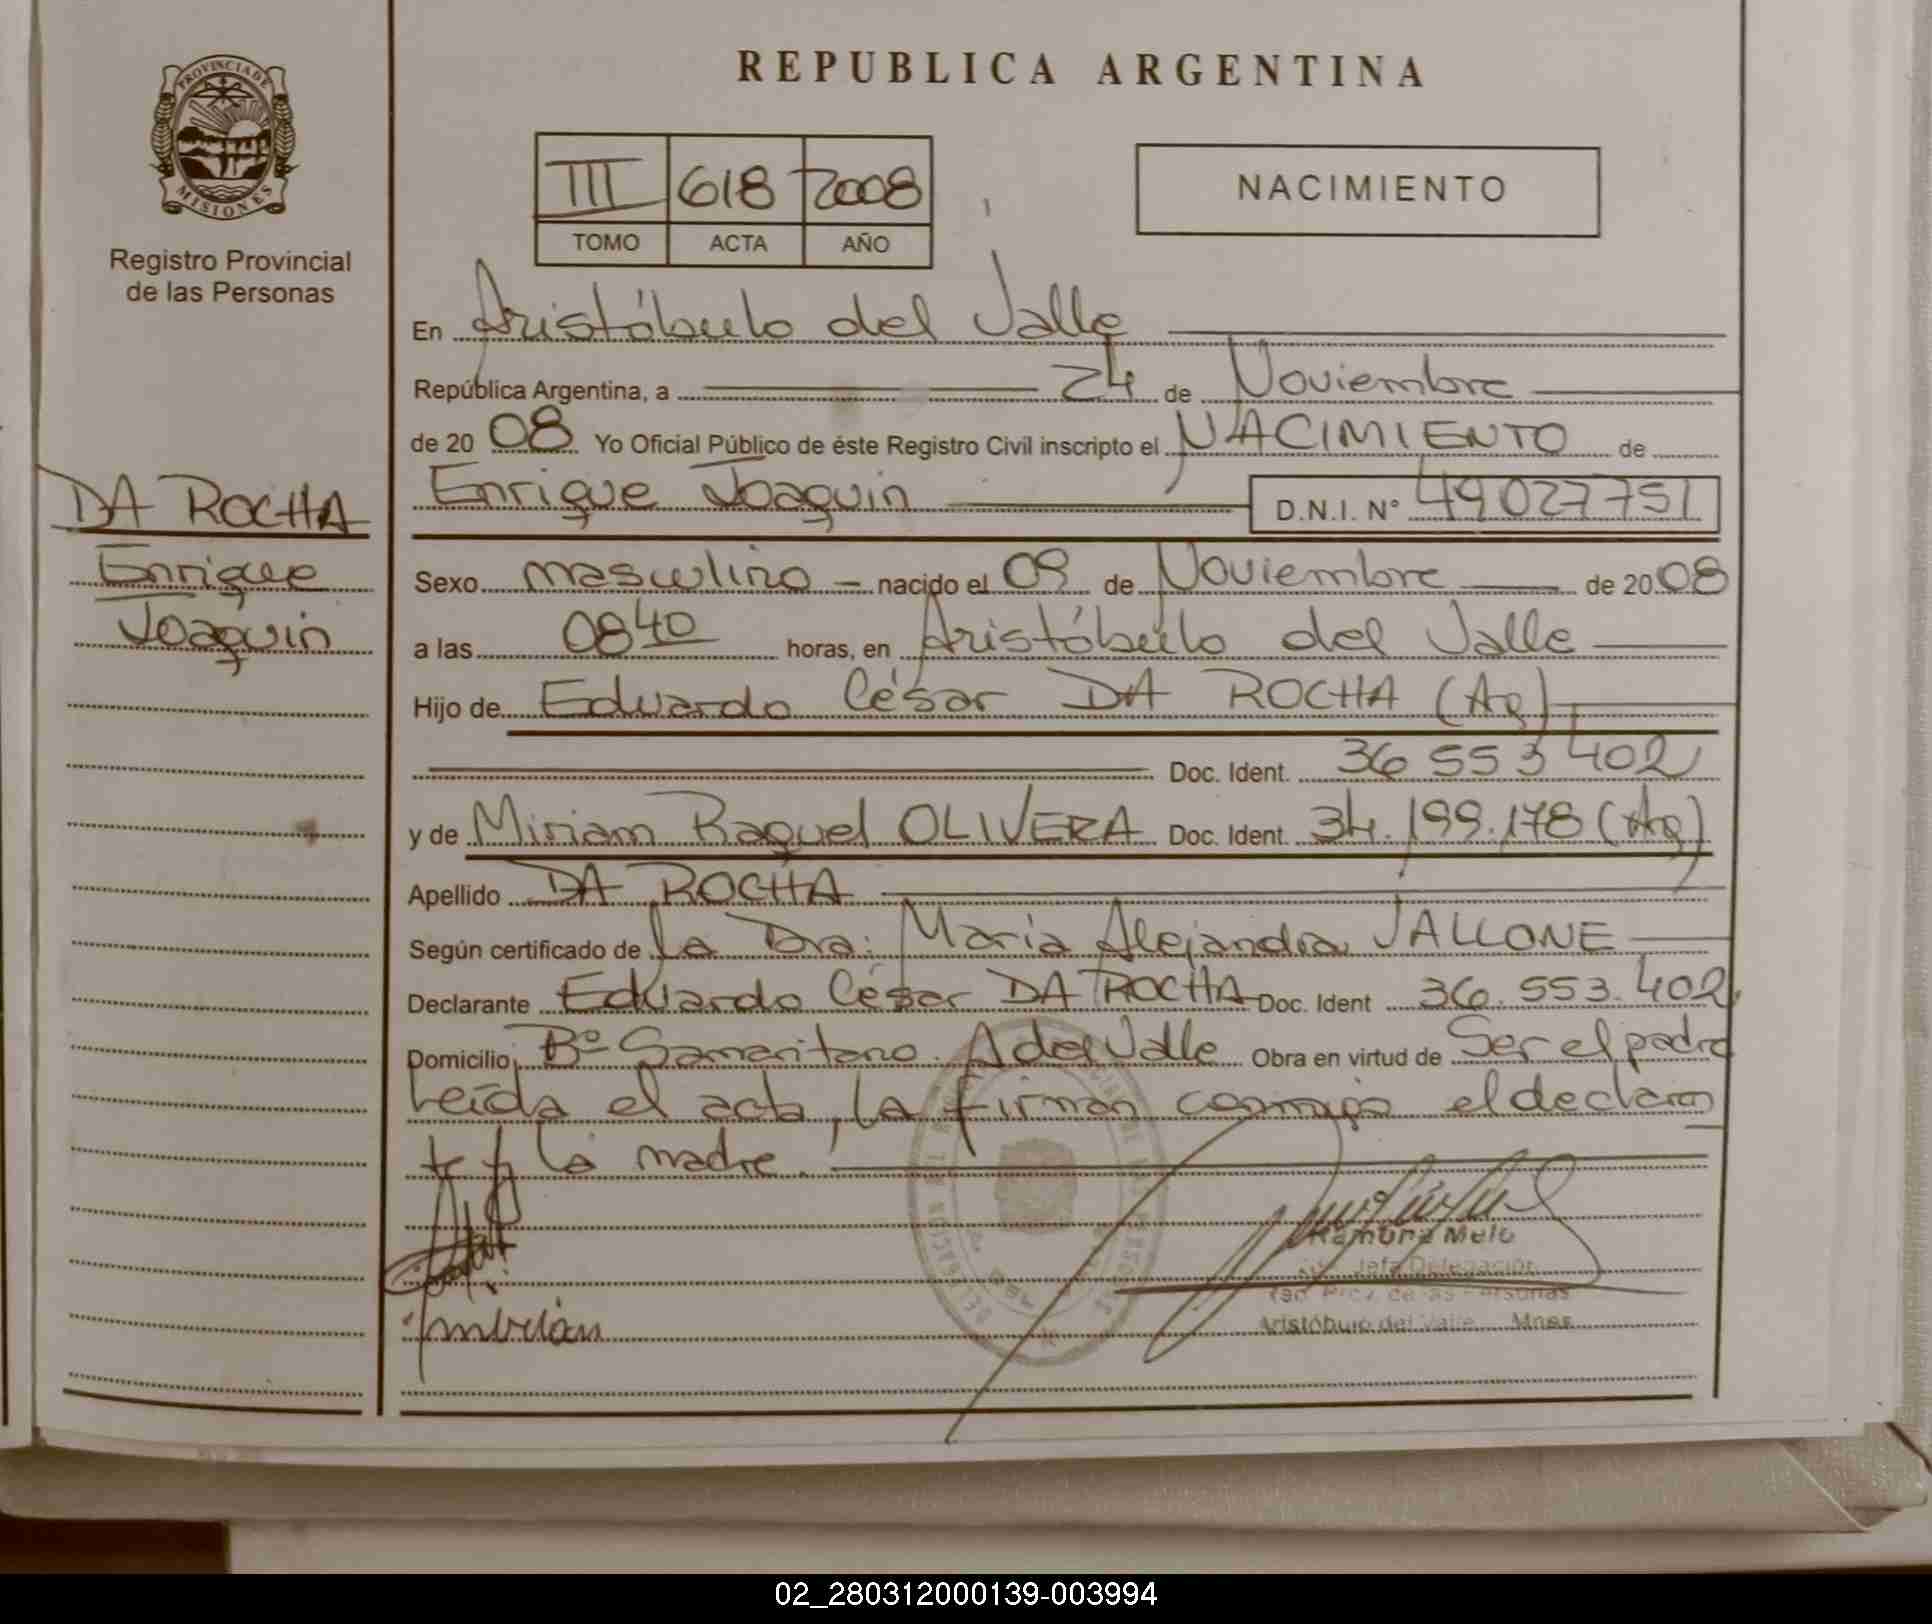 PROVINCIA DE
MISIONES
Registro Provincial
de las Personas
DA ROCHA
Enrique
Joaquin
REPUBLICA ARGENTINA
III 618 2008
TOMO ACTA AÑO
NACIMIENTO
En Aristóbulo del Valle
República Argentina, a 24 de Noviembre
de 2008 Yo Oficial Público de éste Registro Civil inscripto el NACIMIENTO de
Enrique Joaquin D.N.I. N° 49027751
Sexo masculino nacido el 09 de Noviembre de 2008
a las 0840 horas, en Aristóbulo del Valle
Hijo de Eduardo César DA ROCHA (Ag)
Doc. Ident. 36 553 402
y de Miriam Raquel OLIVERA Doc. Ident. 34.199.178 (Ag)
Apellido DA ROCHA
Según certificado de la Dra: María Alejandra VALLONE
Declarante Eduardo César DA ROCHA Doc. Ident 36.553.402
Domicilio Bº Samaritano. A del Valle Obra en virtud de Ser el padre
Leída el acta, la firman conmigo el declaran
te y la madre.
Ramona Melo
Jefa Delegación
Prov. de las Personas
Aristóbulo del Valle Mnes.
02_280312000139-003994